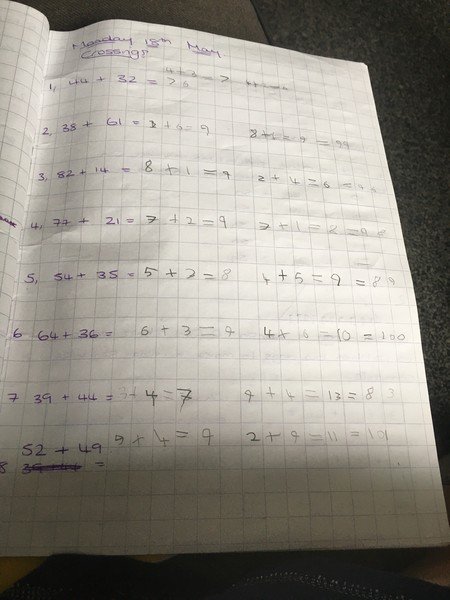 Monday 18th May
Crossings
1, 44 + 32 = 4+3=7
76
2. 38 + 61 = 3+6=9 8+1=9 =99
3. 82+14 = 8+1=9 2+4=6 =96
4, 77 + 21 = 7+2=9 7+1=8 =98
5, 54+35 = 5+3=8 4+5=9 =89
6 64+36= 6+3=9 4+6=10=100
7 39+44= 3+4=7 9+4=13=83
52 + 49 5+4=9 2+9=11=101
8 =